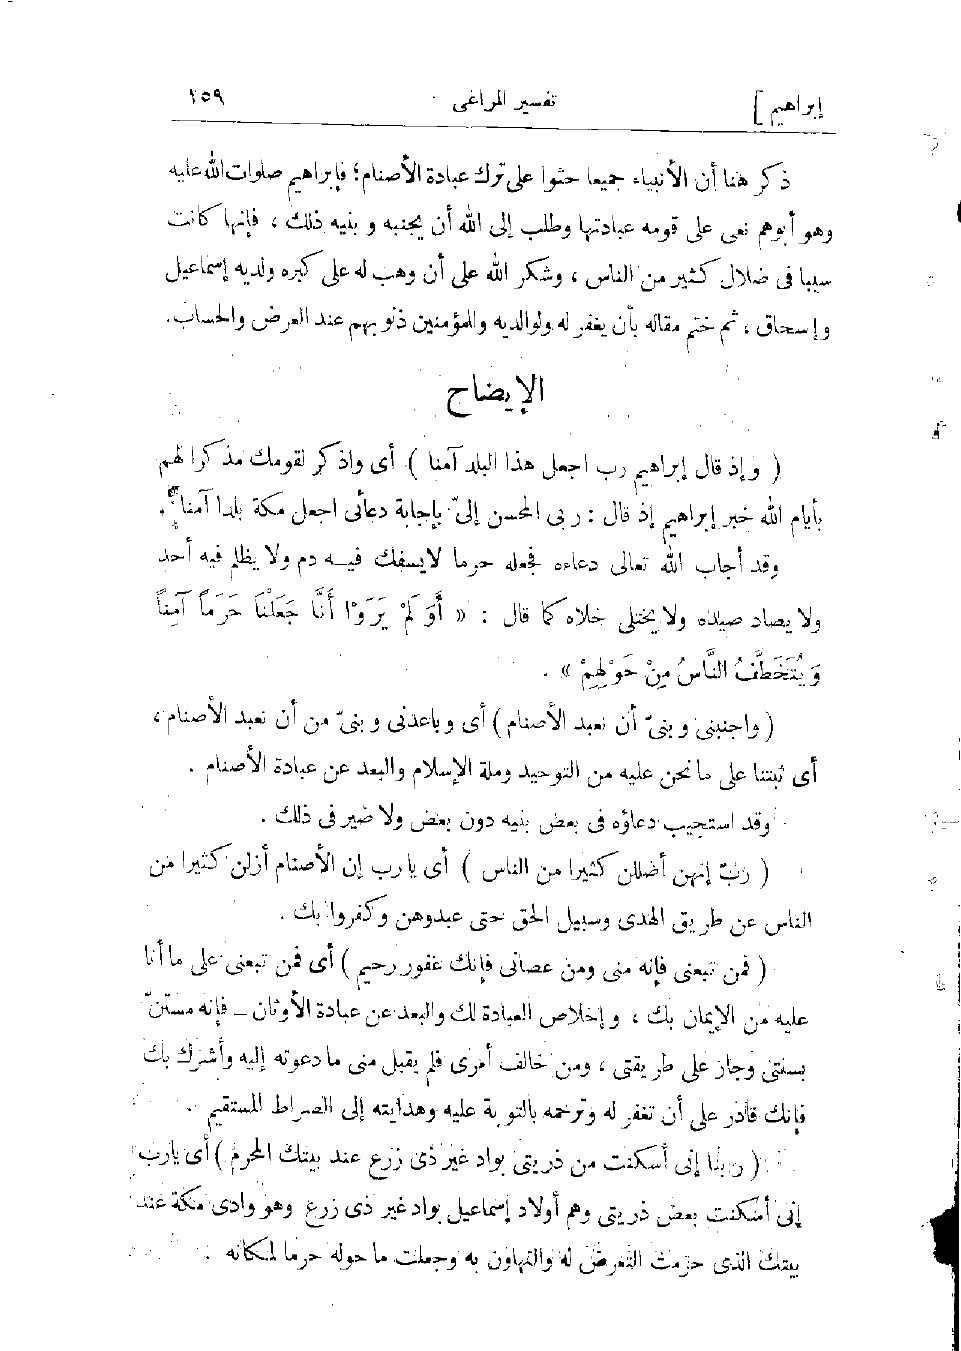 إبراهيم ] تفسير المراغى ٢٥٩
ذكر هنا أن الأنبياء جميعا حثوا على ترك عبادة الأصنام؛ فإبراهيم صلوات الله عليه
وهو أبوهم نعى على قومه عبادتها وطلب إلى الله أن يجنبه وبنيه ذلك ، فإنها كانت
سببا فى ضلال كثير من الناس ، وشكر الله على أن وهب له على كبره ولديه إسماعيل
وإسحاق ، ثم ختم مقاله بأن يغفر له ولوالديه وللمؤمنين ذنوبهم عند العرض والحساب.
الإيضاح
( وإذ قال إبراهيم رب اجعل هذا البلد آمنا ) أى واذكر لقومك مذكرا لهم
بأيام الله خبر إبراهيم إذ قال : ربى المحسن إلىّ بإجابة دعائى اجعل مكة بلدا آمنا .
وقد أجاب الله تعالى دعاءه فجعله حرما لا يسفك فيه دم ولا يظلم فيه أحد
ولا يصاد صيده ولا يختلى خلاه كما قال : « أَوَ لَمْ يَرَوْا أَنَّا جَعَلْنَا حَرَماً آمِناً
وَيُتَخَطَّفُ النَّاسُ مِنْ حَوْلِهِمْ » .
( واجنبنى وبنىّ أن نعبد الأصنام ) أى وباعدنى وبنىّ من أن نعبد الأصنام ،
أى ثبتنا على ما نحن عليه من التوحيد وملة الإسلام والبعد عن عبادة الأصنام .
وقد استجيب دعاؤه فى بعض بنيه دون بعض ولا ضير فى ذلك .
( ربّ إنهن أضللن كثيرا من الناس ) أى يا رب إن الأصنام أزلن كثيرا من
الناس عن طريق الهدى وسبيل الحق حتى عبدوهن وكفروا بك .
( فمن تبعنى فإنه منى ومن عصانى فإنك غفور رحيم ) أى فمن تبعنى على ما أنا
عليه من الإيمان بك ، وإخلاص العبادة لك والبعد عن عبادة الأوثان ــ فإنه مستنّ
بسنتى وجار على طريقتى ، ومن خالف أمرى فلم يقبل منى ما دعوته إليه وأشرك بك
فإنك قادر على أن تغفر له وترحمه بالتوبة عليه وهدايته إلى الصراط المستقيم .
( ربنا إنى أسكنت من ذريتى بواد غير ذى زرع عند بيتك المحرم ) أى يا رب
إنى أسكنت بعض ذريتى وهم أولاد إسماعيل بواد غير ذى زرع وهو وادى مكة عند
بيتك الذى حرمت التعرض له والتهاون به وجعلت ما حوله حرما لمكانه .